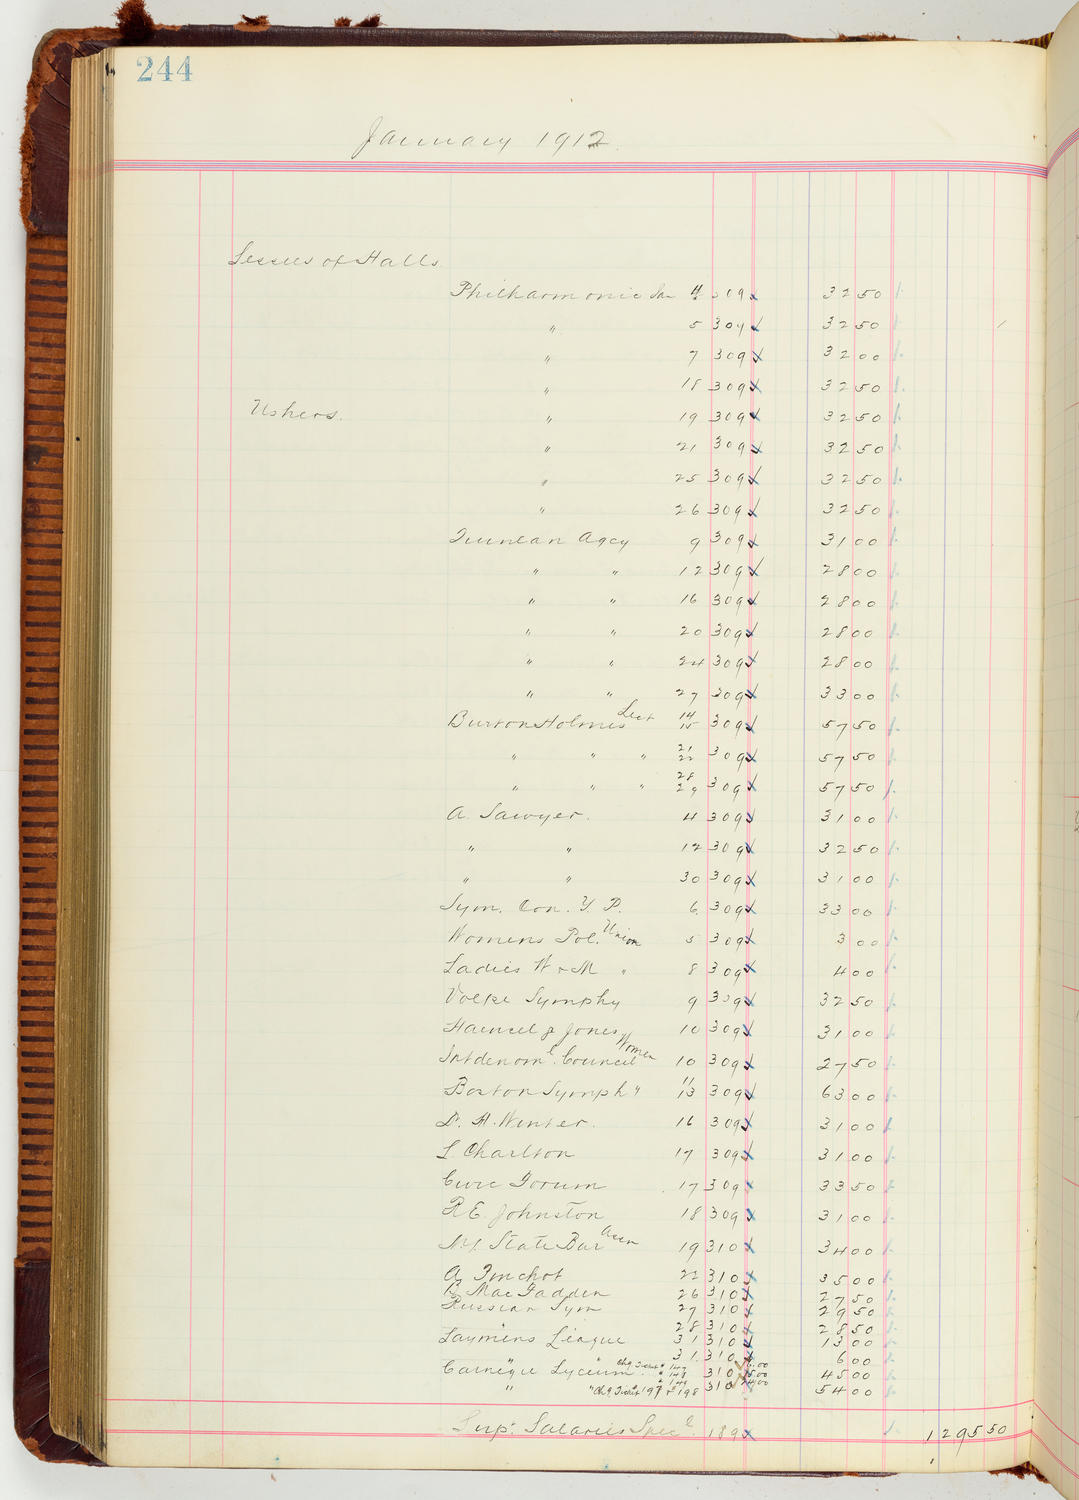 244
January 1912
Lessees of Halls.
Philharmonic Jan 4 309 32 50
" 5 309 32 50
" 7 309 32 00
" 18 309 32 50
Ushers. " 19 309 32 50
" 21 309 32 50
" 25 309 32 50
" 26 309 32 50
Quinlan Agcy 9 309 31 00
" " 12 309 28 00
" " 16 309 28 00
" " 20 309 28 00
" " 24 309 28 00
" " 27 309 33 00
Burton Holmes Lect 14 15 309 57 50
" " " 21 22 309 57 50
" " " 28 29 309 57 50
A. Sawyer. 4 309 31 00
" " 12 309 32 50
" " 30 309 31 00
Sym. Con. Y. P. 6 309 33 00
Womens Pol. Union 5 309 3 00
Ladies W & M " 8 309 4 00
Volpe Symphy 9 309 32 50
Haensel & Jones 10 309 31 00
Intdenoml. Council Women 10 309 27 50
Boston Symphy 11 13 309 63 00
D. H. Winter. 16 309 31 00
L. Charlton 17 309 31 00
Civic Forum 17 309 33 50
R.E. Johnston 18 309 31 00
N.Y. State Bar Assn 19 310 34 00
A. 22 310 35 00
B. MacFadden 26 310 27 50
Russian Sym 27 310 29 50
" 28 310 28 50
Laymens League 31 310 13 00
31. 310 6 00
Carnegie Lyceum Chg Ticket # 147 " 148 " 149 310 45 00
" " Chg Ticket 197 & 198 310 54 00
Supt. Salaries Specl. 189 1295 50